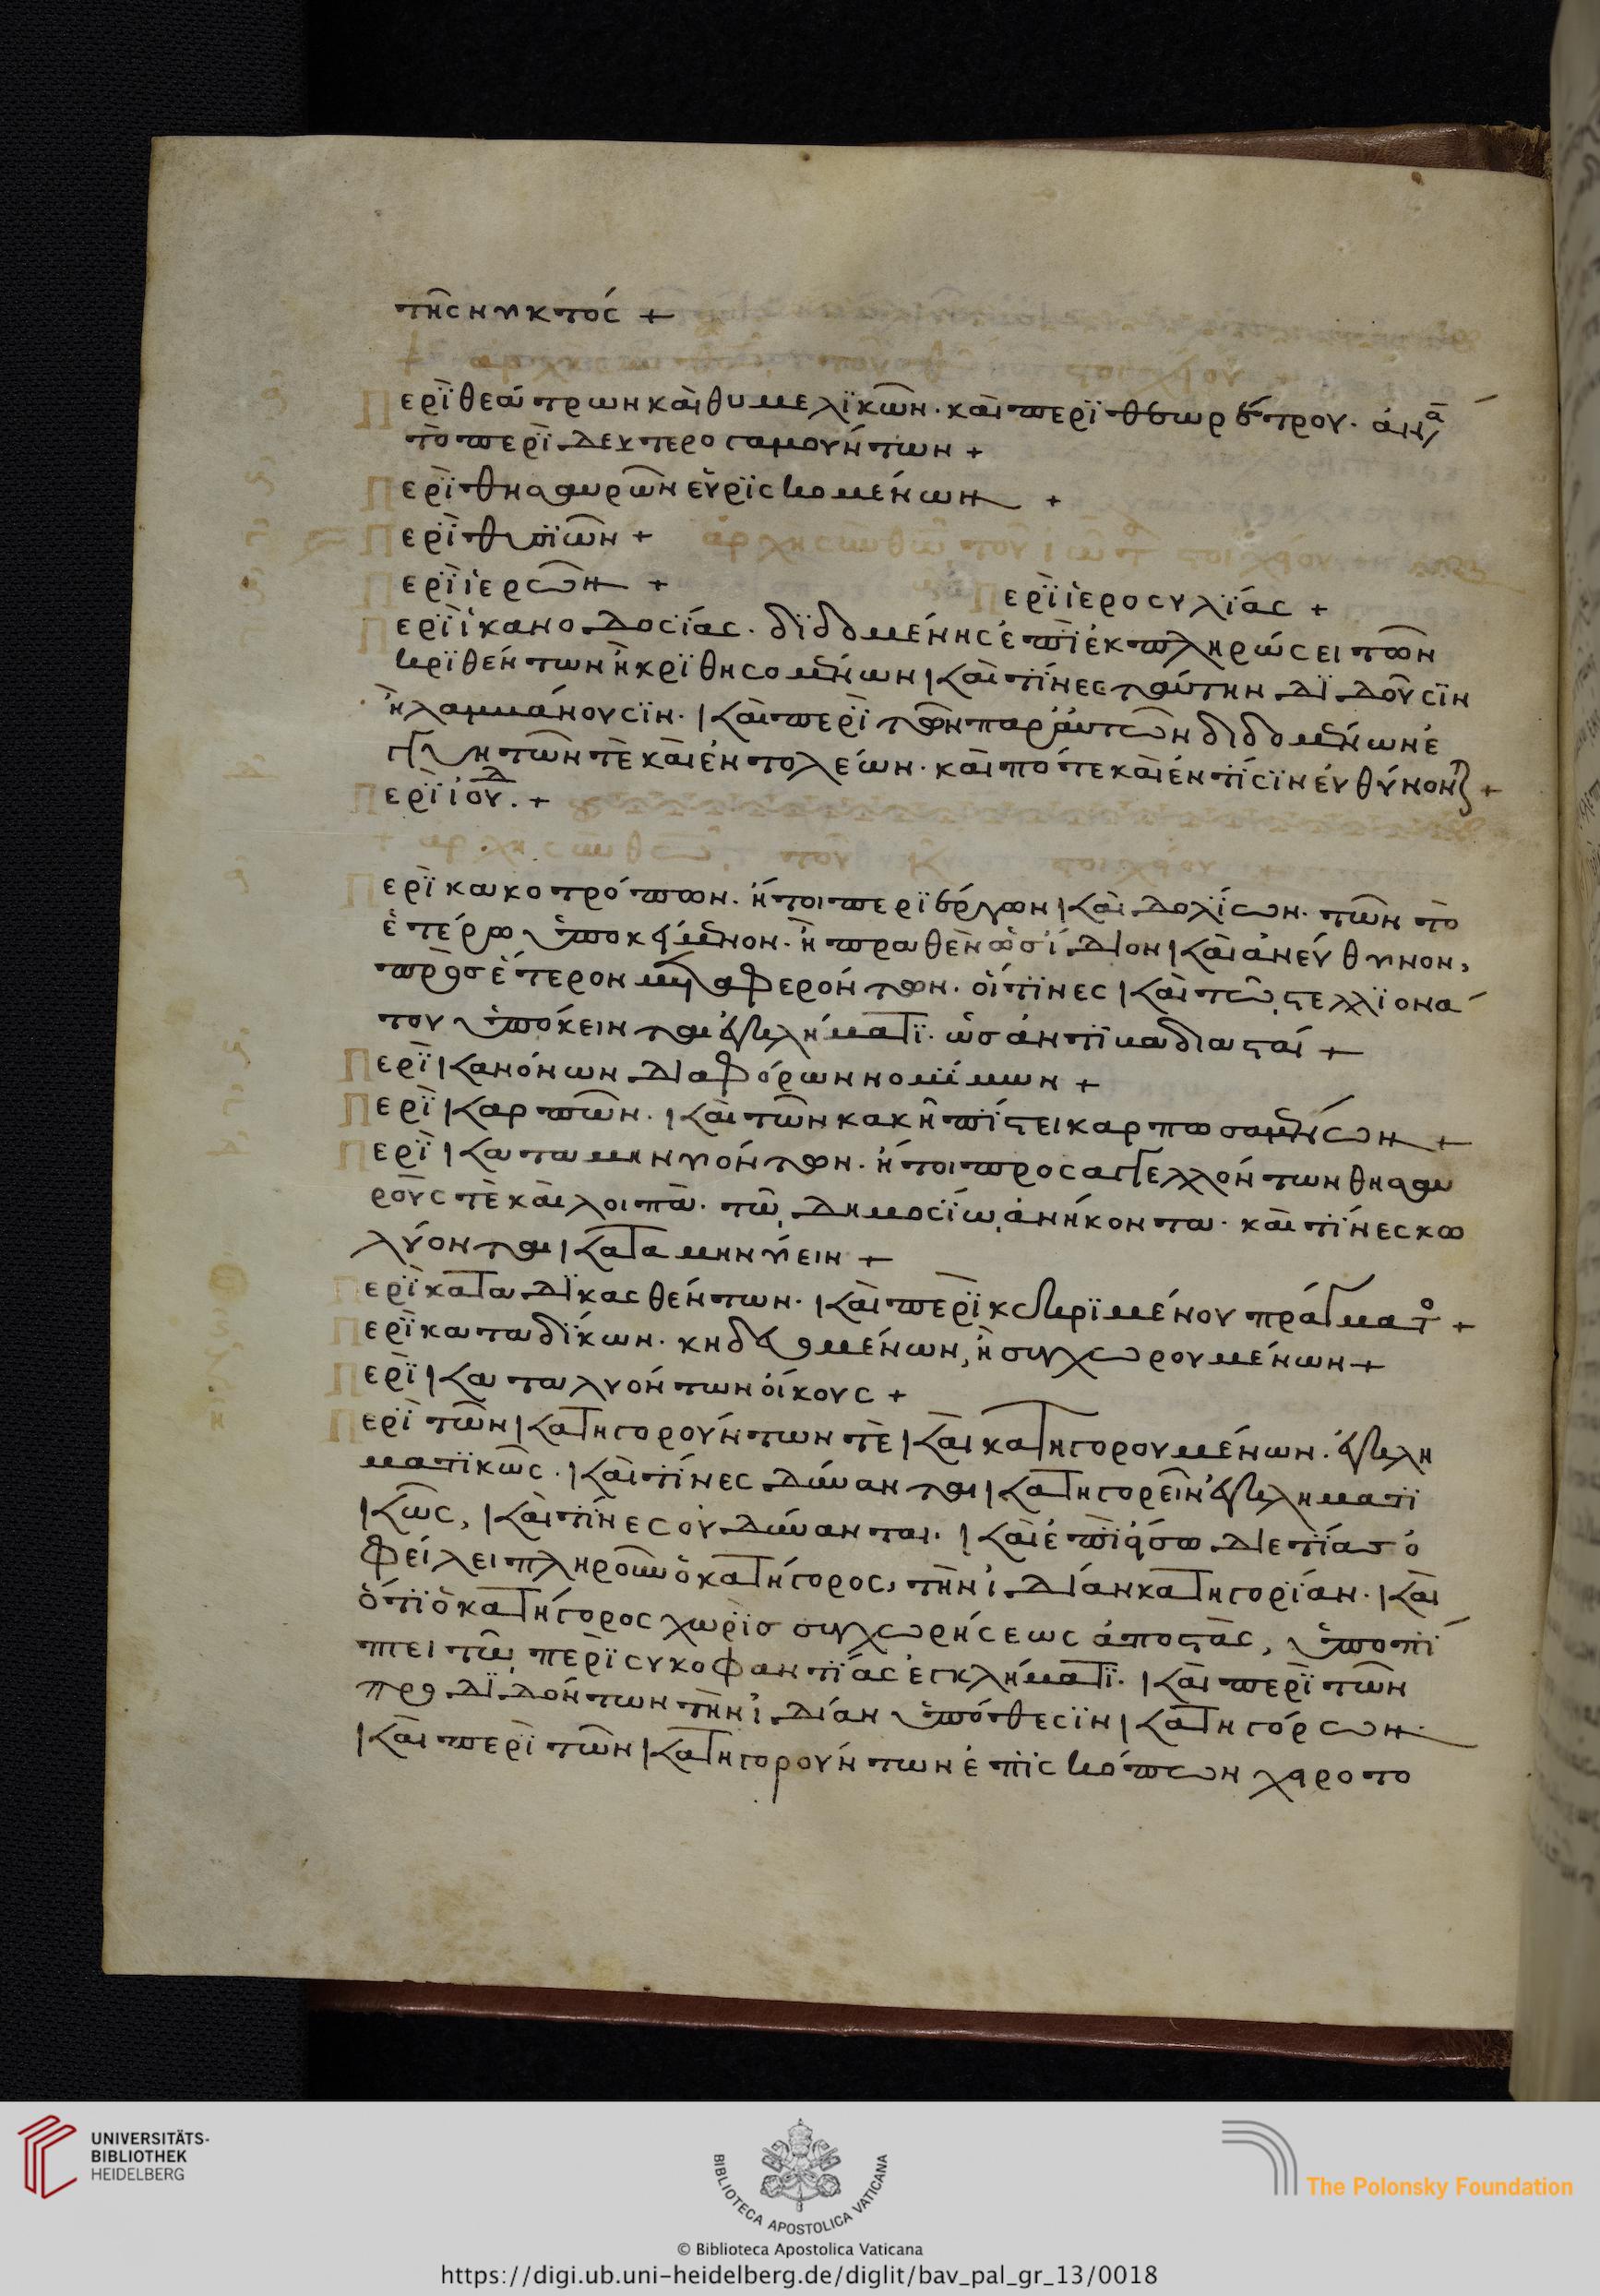 τῆς νυκτός +
Περὶ θεάτρων καὶ θυμελικῶν. καὶ περὶ θεωρέτρου. ἀν
τὸ περὶ δευτερογαμούντων +
Περὶ θησαυρῶν εὑρισκομένων +
Περὶ θυσιῶν + ἀρχὴ σὺν θῶ τοῦ ἰῶτ στοιχείου
Περὶ ἱερῶν + Περὶ ἱεροσυλίας +
Περὶ ἱκανοδοσίας. διδομένης ἐπὶ ἐκπληρώσει τῶν
κριθέντων ἢ κριθησομένων καὶ τίνες ταύτην διδοῦσιν
ἢ λαμμάνουσιν. καὶ περὶ τῶν παρ' αὐτῶν διδομένων ἐ
τῶν τὲ καὶ ἐντολέων. καὶ πότε καὶ ἐν τίσιν εὐθύνον +
Περὶ ἰουδ. +
+ ἀρχὴ σὺν θῶ τοῦ κ στοιχείου
Περὶ κακοτρόπων. ἤτοι περιέργων καὶ δολίων. τῶν τὸ
ἑτέρω ὑποκείμενον. ἢ πραθὲν ὡσ ἴδιον καὶ ἀνεύθυνον,
πρὸσ ἕτερον μεταφερόντων. οἵτινες καὶ τῶ στελλιονά
του ὑπόκεινται ἐγκλήματι. ὡσ ἀντικαδιασταί +
Περὶ κανόνων διαφόρων νομίμων +
Περὶ καρπῶν. καὶ τῶν κακῆ πίστει καρπωσαμένων +
Περὶ καταμηνυόντων. ἤτοι προσαγγελλόντων θησαυ
ροὺς τὲ καὶ λοιπὰ. τῶ δημοσίω ἀνήκοντα. καὶ τίνες κω
λύονται καταμηνύειν +
Περὶ καταδικασθέντων. καὶ περὶ κεκριμένου πράγματ +
Περὶ καταδίκων. κηδευομένων, ἢ συγχωρουμένων +
Περὶ καταλυόντων οἴκους +
Περὶ τῶν κατηγορούντων τὲ καὶ κατηγορουμένων. ἐγκλη
ματικῶς. καὶ τίνες δύνανται κατηγορεῖν ἐγκληματι
κῶς, καὶ τίνες οὐ δύνανται. καὶ ἐπὶ πόσω διετίασ ὀ
φείλει πληροῦν ὁ κατήγορος, τὴν ἰδίαν κατηγορίαν. καὶ
ὅτι ὁ κατήγορος χωρὶσ συγχωρήσεως ἀποστὰς, ὑποπί
πτει τῶ περὶ συκοφαντίας ἐγκλήματι. καὶ περὶ τῶν
προδιδόντων τὴν ἰδίαν ὑπόθεσιν κατηγόρων.
καὶ περὶ τῶν κατηγορούντων ἐπισκόπων χειροτο
UNIVERSITÄTS-
BIBLIOTHEK
HEIDELBERG
BIBLIOTECA APOSTOLICA VATICANA
The Polonsky Foundation
© Biblioteca Apostolica Vaticana
https://digi.ub.uni-heidelberg.de/diglit/bav_pal_gr_13/0018